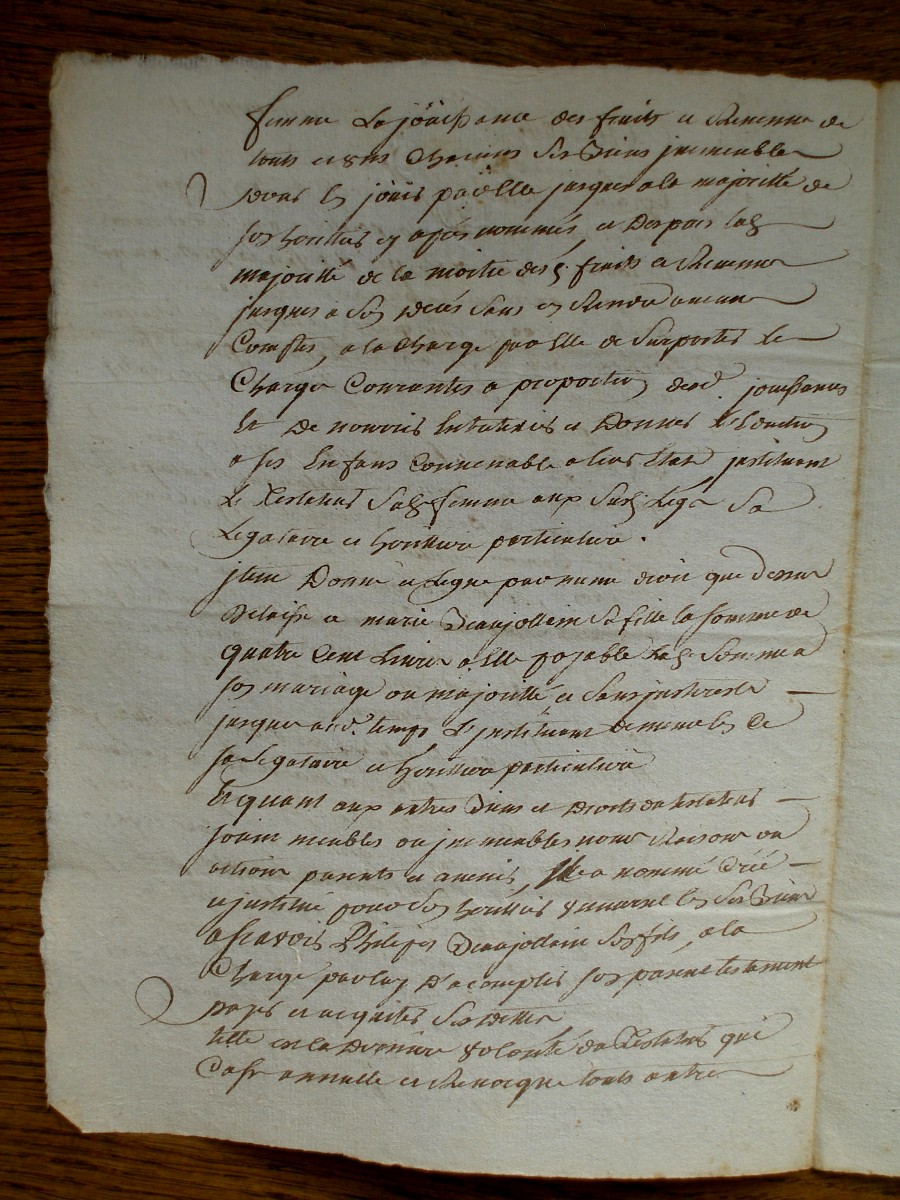 femme La jöuissance des fruits et Revenus de
touts et uns Chacuns ses Biens jmmeubles
pour En jöuir par Elle jusques a la majorité de
son heritier cy aprés nommés, et Despuis lad.
majorité de la moitie desd. fruits et Revenus
jusques a son decés sans En Rendre aucun
Comptes, a la Charge par Elle de Surporter les
Charges Courantes a proportion desd. jouissances
Et De nourrir Entretenir et Donner L'Education
a ses Enfans Convenable a leur Etat, jnstituant
Le Testateur Sad. femme aux Susd. Legs Sa
Legataire et heritiere particuliere.
jtem Donne et Legue par meme droit que dessus
Delaisse a marie Beaujollain Sa fille la somme de
quatre Cent Livres a Elle payable lad. Somme a
son mariage ou majorité et Sans jnterests
jusques aud. temps L'jnstituant De meme En Ce
sa Legataire et heritiere particuliere
Et quant aux autres Biens et Droits du testateur
soient meubles ou jmmeubles noms Raisons ou
actions presents et avenir, Il a nommé Créé
et jnstitué pour Son heritier universel En Ses Biens
a scavoir Philipes Beaujollain Son fils, a la
Charge par luy D'acomplir son present testament
payer et acquiter Ses dettes
telle est la Derniere volonté du Testateur qui
Casse annulle et Revoque touts autres